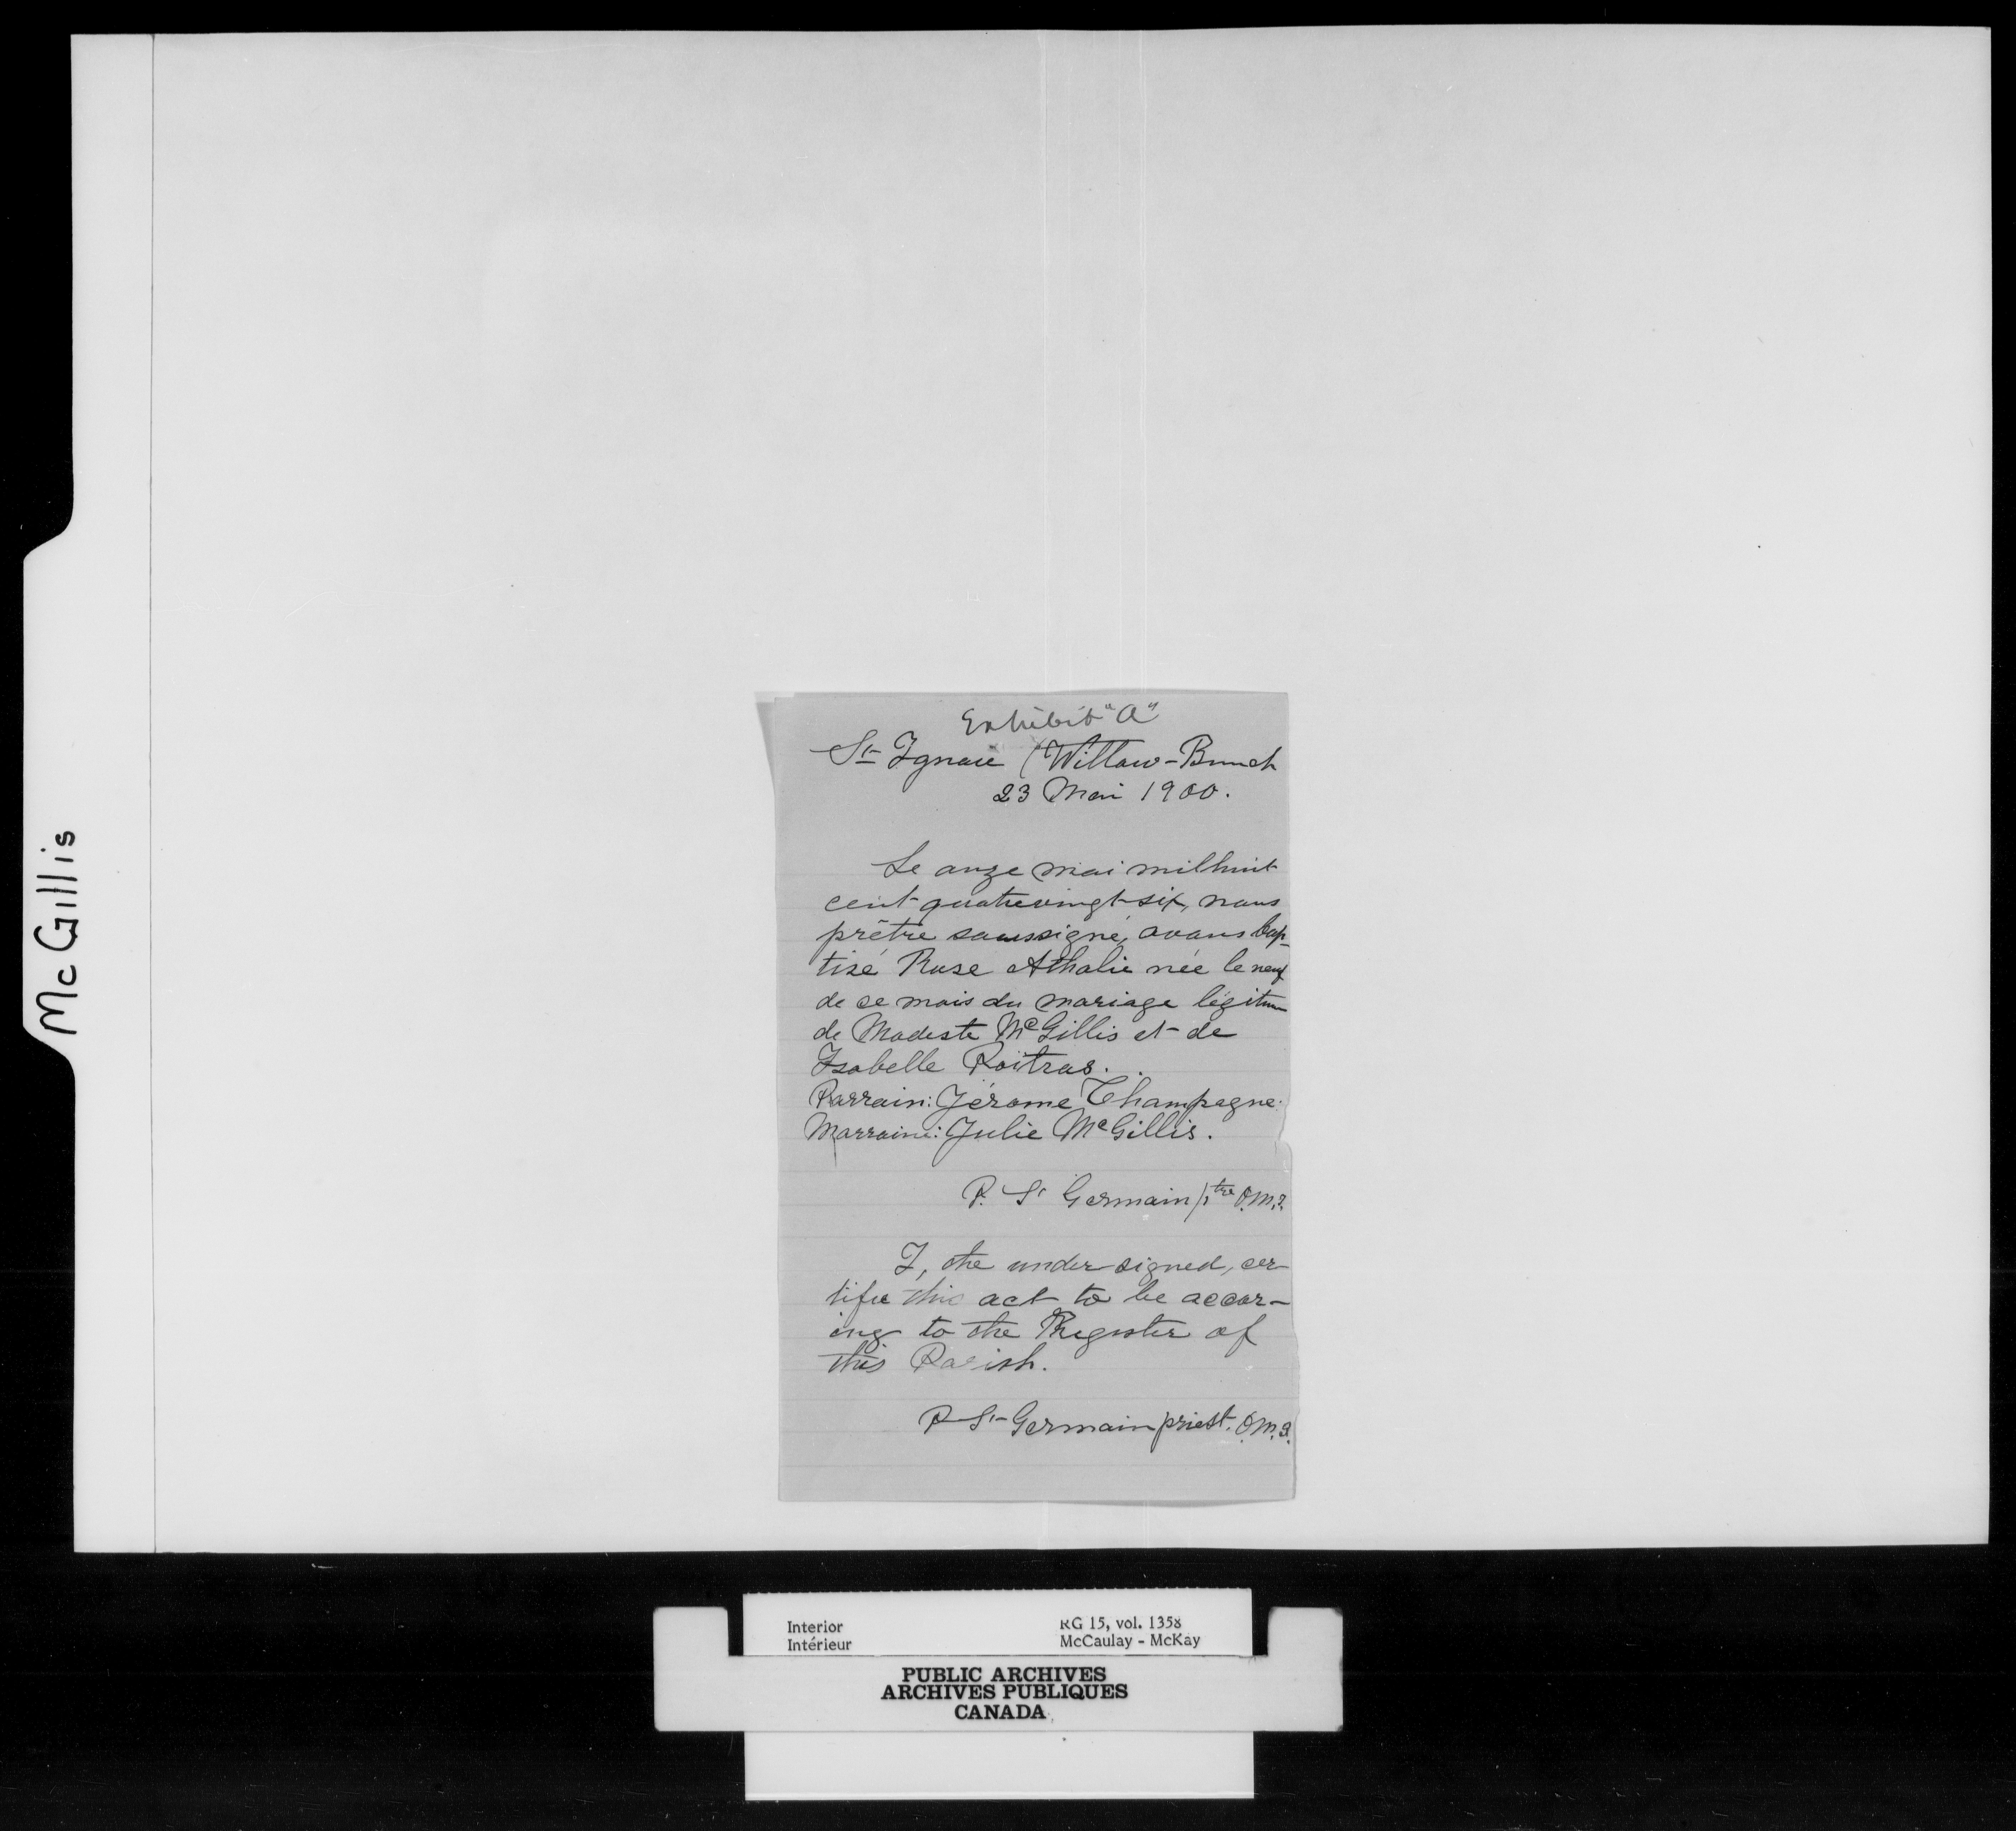 McGillis
Exhibit "A"
St Ignace (Willow-Bunch
23 Mai 1900.
Le onze mai mil huit
cent quatrevingt-six, nous
prêtre soussigné, avons bap-
tisé Rose Athalie née le neuf
de ce mois du mariage légitime
de Modeste McGillis et de
Isabelle Poitras.
Parrain: Jérome Champagne.
Marraine: Julie McGillis.
P. St Germain ptre O.M.I.
I, the under-signed, cer-
tifie this act to be accor-
ing to the Register of
this Parish.
P St-Germain priest. O.M.I.
Interior
Intérieur
RG 15, vol. 1358
McCaulay - McKay
PUBLIC ARCHIVES
ARCHIVES PUBLIQUES
CANADA